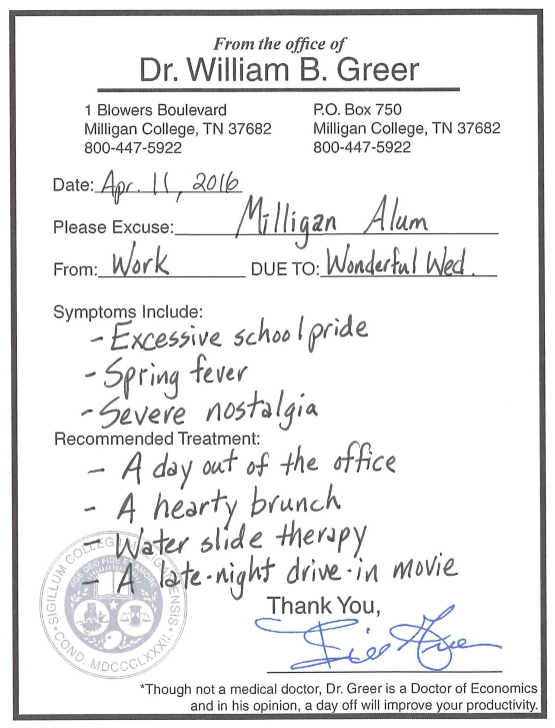 From the office of
Dr. William B. Greer
1 Blowers Boulevard
Milligan College, TN 37682
800-447-5922
P.O. Box 750
Milligan College, TN 37682
800-447-5922
Date: Apr. 11, 2016
Please Excuse: Milligan Alum
From: Work DUE TO: Wonderful Wed.
Symptoms Include:
- Excessive school pride
- Spring fever
- Severe nostalgia
Recommended Treatment:
- A day out of the office
- A hearty brunch
- Water slide therapy
- A late-night drive-in movie
Thank You,
*Though not a medical doctor, Dr. Greer is a Doctor of Economics
and in his opinion, a day off will improve your productivity.
SIGILLUM COLLEG
ENSIS
COND. MDCCCLXXXII.